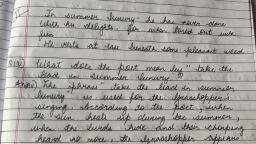 In summer luxury he has never done
with his delights, for when tired out with
fun
He rests at ease beneath some pleasant weed
What does the poet mean by "take the
lead in summer luxury"
The phrase "take the lead in summer
luxury" is used for the Grasshopper's
singing. According to the poet, when
the sun heats up during the summer,
when the birds hide and their chirping
heard no more the grasshopper appears